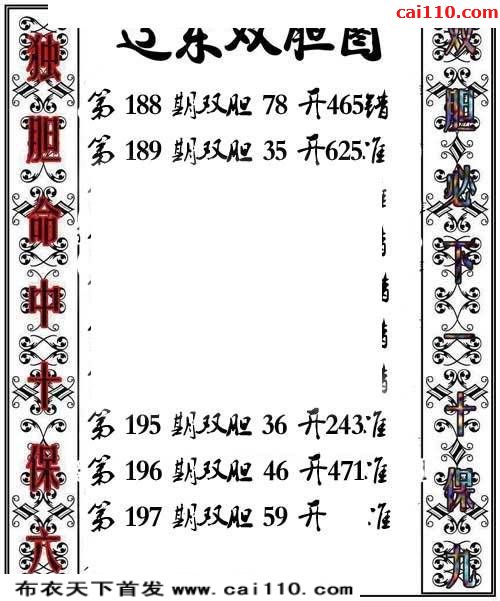 cai110.com
东双胆图
独胆命中十保六
第 188 期双胆 78 开465错
第 189 期双胆 35 开625准
第 195 期双胆 36 开243准
第 196 期双胆 46 开471准
第 197 期双胆 59 开 准
双胆必下一十保九
布衣天下首发 www.cai110.com